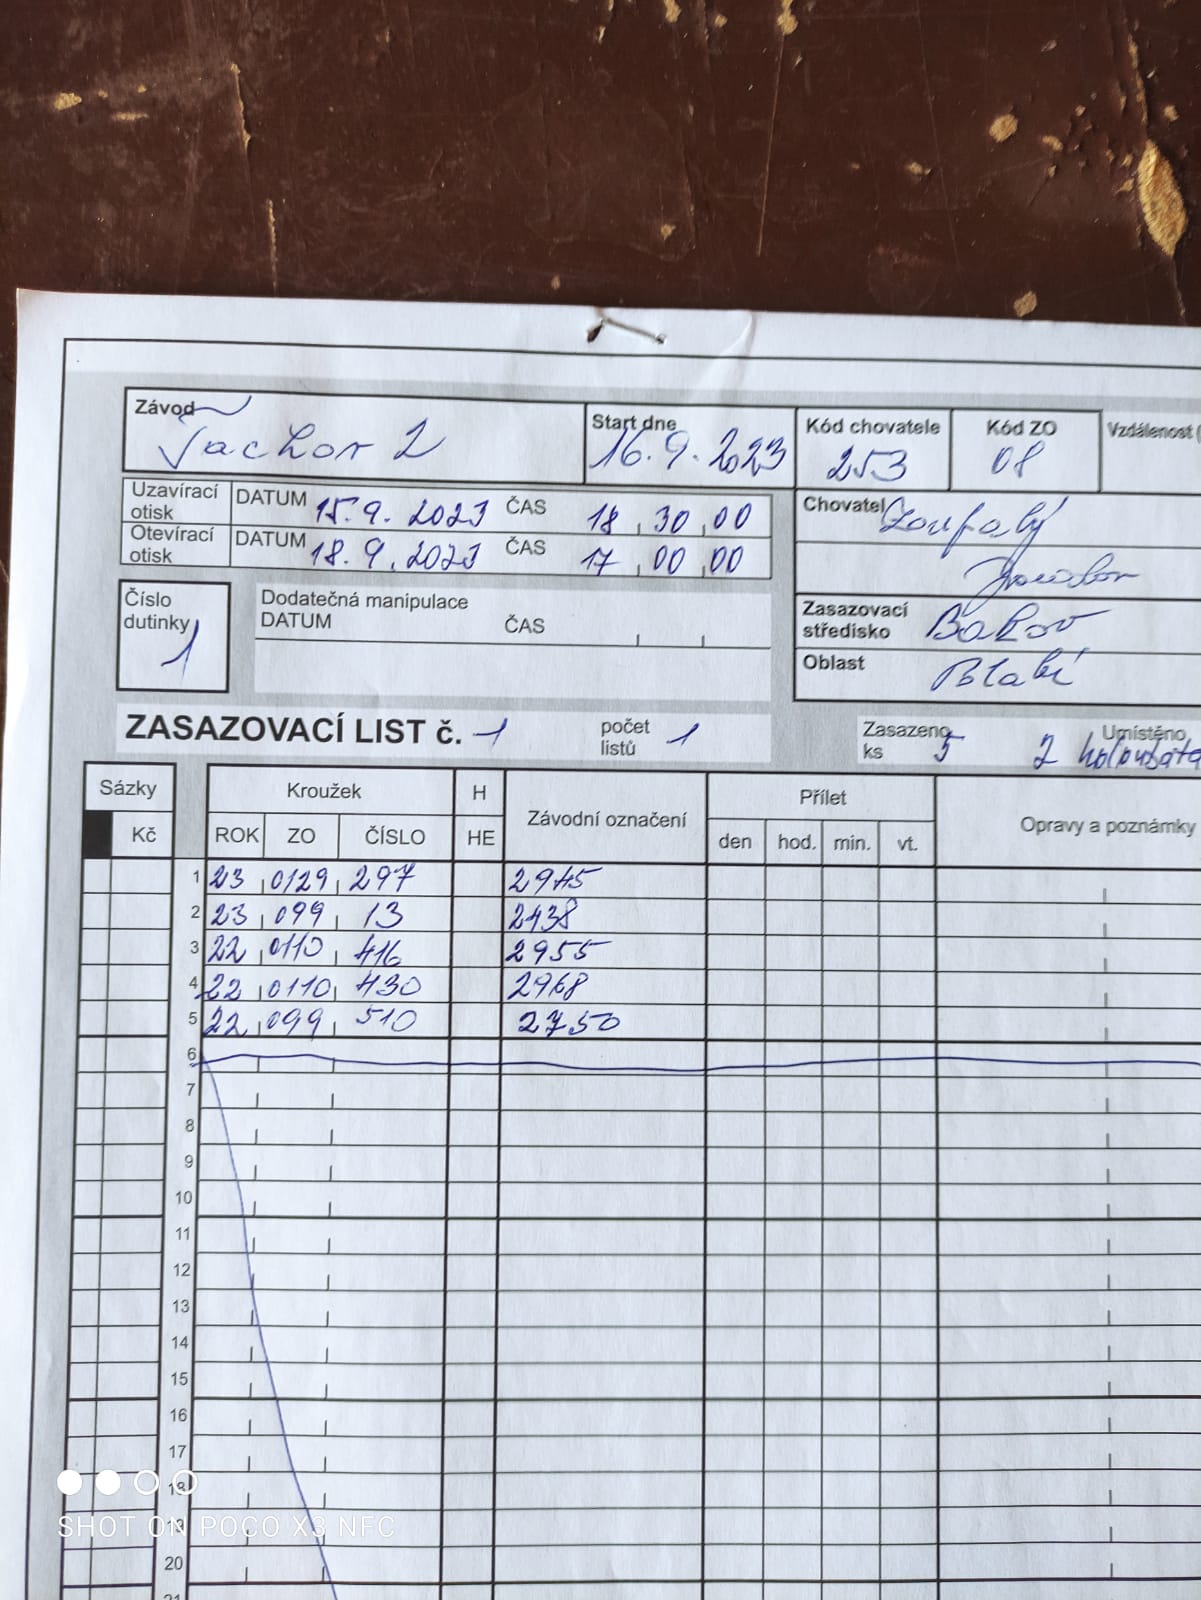 Závod
Tachov 2
Start dne
16.9.2023
Kód chovatele
253
Kód ZO
08
Vzdálenost (
Uzavírací otisk DATUM 15.9.2023 ČAS 18 30 00
Otevírací otisk DATUM 18.9.2023 ČAS 17 00 00
Chovatel Zoufalý
Jaroslav
Číslo dutinky 1
Dodatečná manipulace
DATUM ČAS
Zasazovací středisko Bakov
Oblast
ZASAZOVACÍ LIST č. 1 počet listů 1
Zasazeno ks 5 Umístěno 2 holoubata
Sázky Kroužek H Závodní označení Přílet Opravy a poznámky
Kč ROK ZO ČÍSLO HE den hod. min. vt.
1 23 0129 297 2945
2 23 099 13 2438
3 22 0110 416 2955
4 22 0110 430 2968
5 22 099 510 2750
6
7
8
9
10
11
12
13
14
15
16
17
18
19
20
21
SHOT ON POCO X3 NFC